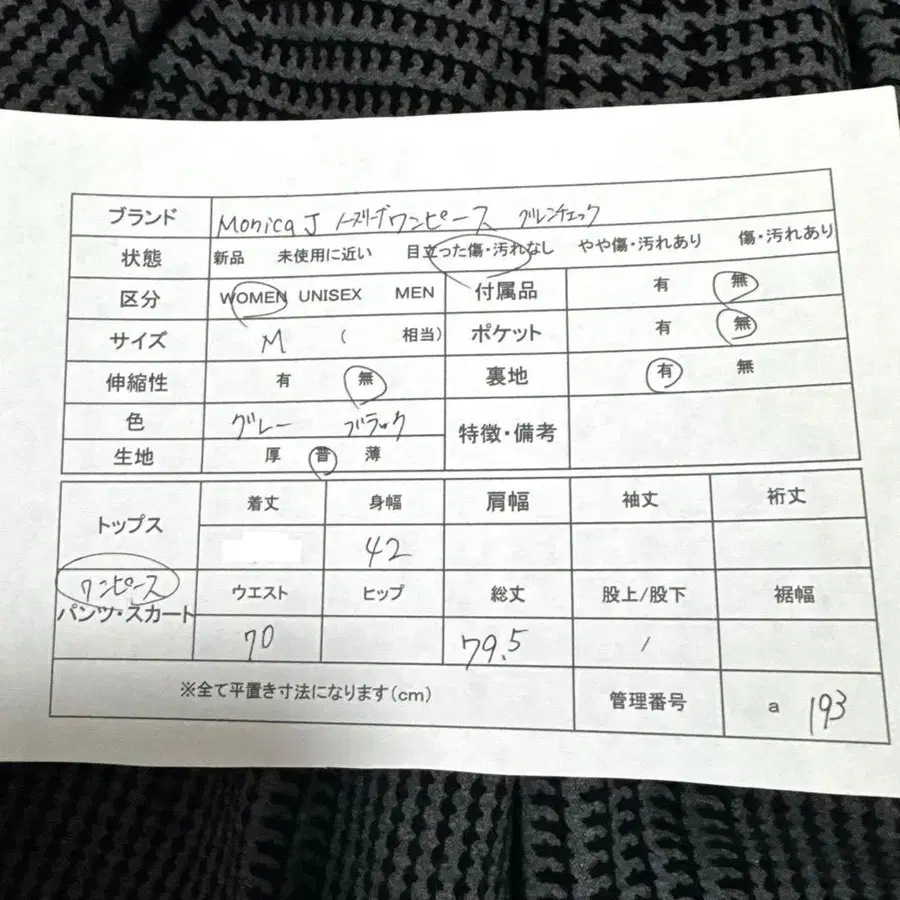 ブランド Monica J ノースリーブワンピース グレンチェック
状態 新品 未使用に近い 目立った傷・汚れなし やや傷・汚れあり 傷・汚れあり
区分 WOMEN UNISEX MEN 付属品 有 無
サイズ M ( 相当) ポケット 有 無
伸縮性 有 無 裏地 有 無
色 グレー ブラック 特徴・備考
生地 厚 普 薄
トップス 着丈 身幅 肩幅 袖丈 裄丈
42
ワンピース
パンツ・スカート ウエスト ヒップ 総丈 股上/股下 裾幅
70 79.5 /
※全て平置き寸法になります(cm) 管理番号 a 193